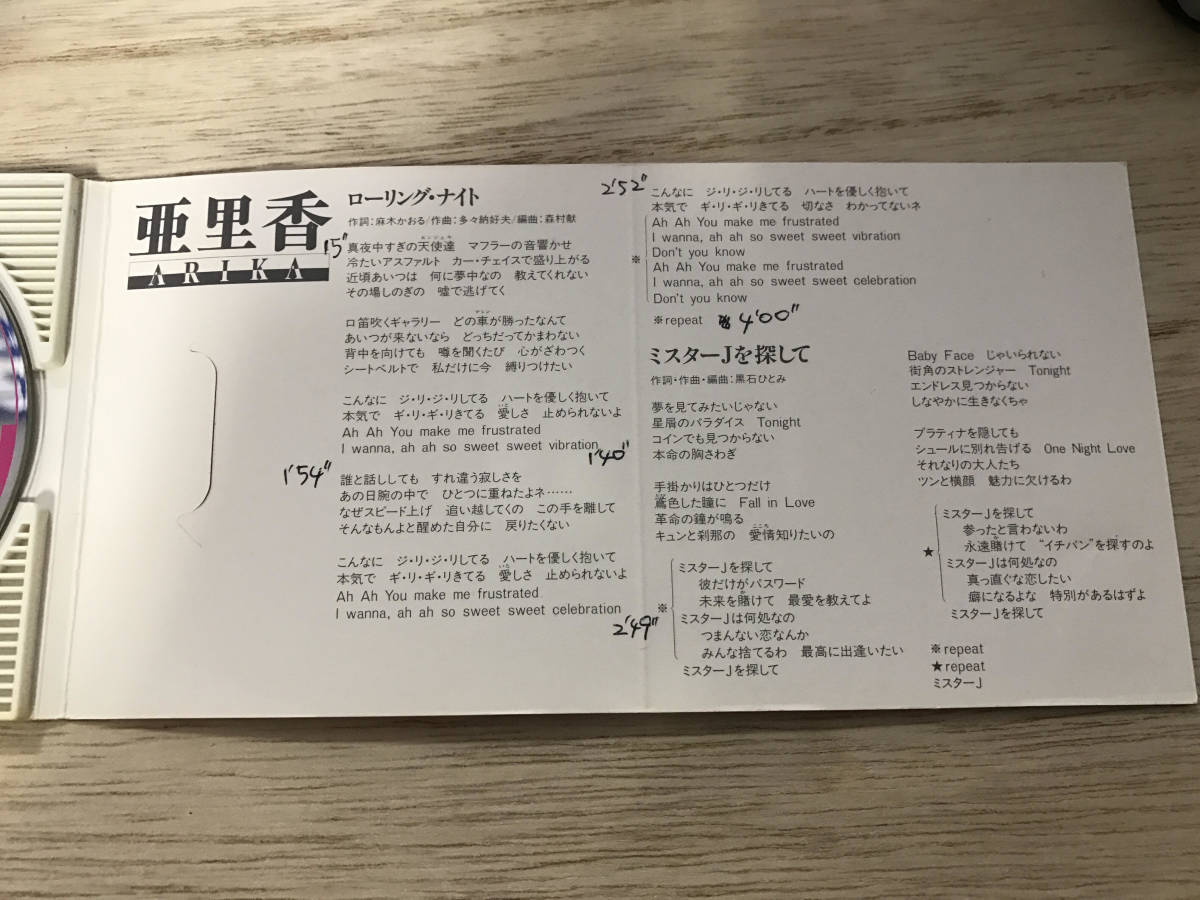 亜里香
ARIKA
ローリング・ナイト
作詞:麻木かおる/作曲:多々納好夫/編曲:森村献
15"
真夜中すぎの天使達　マフラーの音響かせ
冷たいアスファルト　カー・チェイスで盛り上がる
近頃あいつは　何に夢中なの　教えてくれない
その場しのぎの　嘘で逃げてく
口笛吹くギャラリー　どの車が勝ったなんて
あいつが来ないなら　どっちだってかまわない
背中を向けても　噂を聞くたび　心がざわつく
シートベルトで　私だけに今　縛りつけたい
こんなに　ジ・リ・ジ・リしてる　ハートを優しく抱いて
本気で　ギ・リ・ギ・リきてる　愛しさ　止められないよ
Ah Ah You make me frustrated
I wanna, ah ah so sweet sweet vibration
1'40"
1'54"
誰と話ししても　すれ違う寂しさを
あの日腕の中で　ひとつに重ねたよネ……
なぜスピード上げ　追い越してくの　この手を離して
そんなもんよと醒めた自分に　戻りたくない
こんなに　ジ・リ・ジ・リしてる　ハートを優しく抱いて
本気で　ギ・リ・ギ・リきてる　愛しさ　止められないよ
Ah Ah You make me frustrated
I wanna, ah ah so sweet sweet celebration
2'49"
2'52"
こんなに　ジ・リ・ジ・リしてる　ハートを優しく抱いて
本気で　ギ・リ・ギ・リしてる　切なさ　わかってないネ
Ah Ah You make me frustrated
I wanna, ah ah so sweet sweet vibration
Don't you know
※
Ah Ah You make me frustrated
I wanna, ah ah so sweet sweet celebration
Don't you know
※repeat
4'00"
ミスターJを探して
作詞・作曲・編曲:黒石ひとみ
夢を見てみたいじゃない
星屑のパラダイス　Tonight
コインでも見つからない
本命の胸さわぎ
手掛かりはひとつだけ
鳶色した瞳に　Fall in Love
革命の鐘が鳴る
キュンと刹那の　愛情知りたいの
※
ミスターJを探して
彼だけがパスワード
未来を賭けて　最愛を教えてよ
ミスターJは何処なの
つまんない恋なんか
みんな捨てるわ　最高に出逢いたい
ミスターJを探して
Baby Face　じゃいられない
街角のストレンジャー　Tonight
エンドレス見つからない
しなやかに生きなくちゃ
プラティナを隠しても
シュールに別れ告げる　One Night Love
それなりの大人たち
ツンと横顔　魅力に欠けるわ
★
ミスターJを探して
参ったと言わないわ
永遠賭けて　“イチバン”を探すのよ
ミスターJは何処なの
真っ直ぐな恋したい
癖になるよな　特別があるはずよ
ミスターJを探して
※repeat
★repeat
ミスターJ